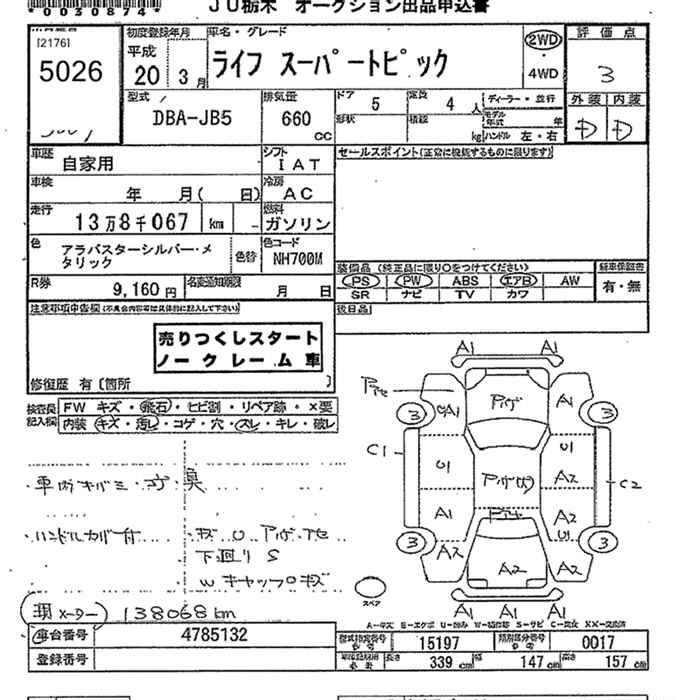 *0030874*
JU栃木 オークション出品申込書
[2176]
5026
初度登録年月
平成
20年 3月
車名・グレード
ライフ スーパートピック
2WD
・
4WD
評価点
3
外装 内装
D D
型式
DBA-JB5
排気量
660
cc
ドア
5
定員
4人
形状
積載
kg
ディーラー・並行
モデル
年式
年
ハンドル 左・右
車歴
自家用
シフト
IAT
セールスポイント(正常に機能するものに限ります)
車検
年 月( 日)
冷房
AC
走行
13万8千067 km
燃料
ガソリン
色
アラバスターシルバー・メ
タリック
色替
色コード
NH700M
R券
9,160円
名変通知期限
月 日
装備品 (純正品に限り○をつけてください)
PS PW ABS エアB AW
SR ナビ TV カワ
新車保証書
有・無
後日品
注意事項申告欄
売りつくしスタート
ノークレーム車
修復歴 有 〔箇所 〕
検査員
記入欄
FW キズ・飛石・ヒビ割・リペア跡・×要
内装 キズ・汚し・コゲ・穴・スレ・キレ・破レ
ハンドルカバー付
下廻り S
W キャップ
メーター
138068km
車台番号
4785132
登録番号
A1 A1
A1
A1
3 3
C1
C2
U1
U1
A2
A1
A2
U1
3 3
A2
A2
A2
A1 A1 A1
スペア
A-キズ E-エクボ U-凹み W-補修跡 S-サビ C-腐食 XX-交換済
型式指定番号
15197
類別区分番号
0017
長さ
339cm
幅
147cm
高さ
157cm